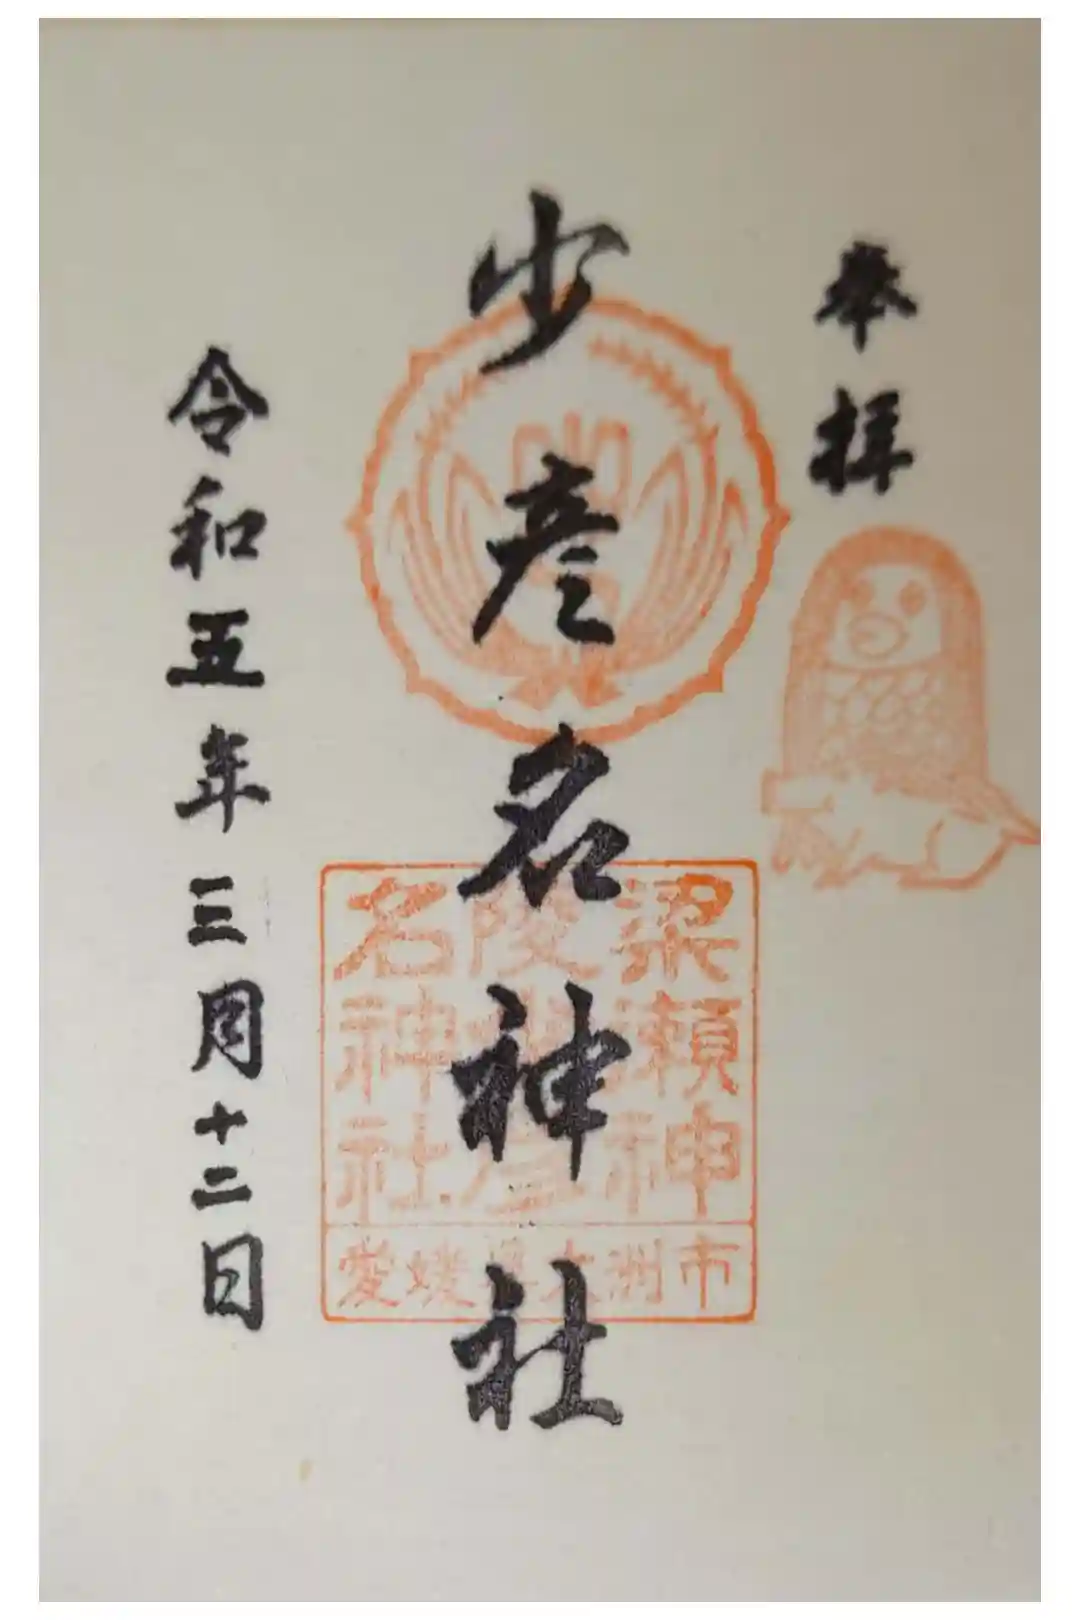 奉拝
少彦名神社
令和五年三月十二日
梁瀬神
陵少彦
名神社
愛媛県大洲市